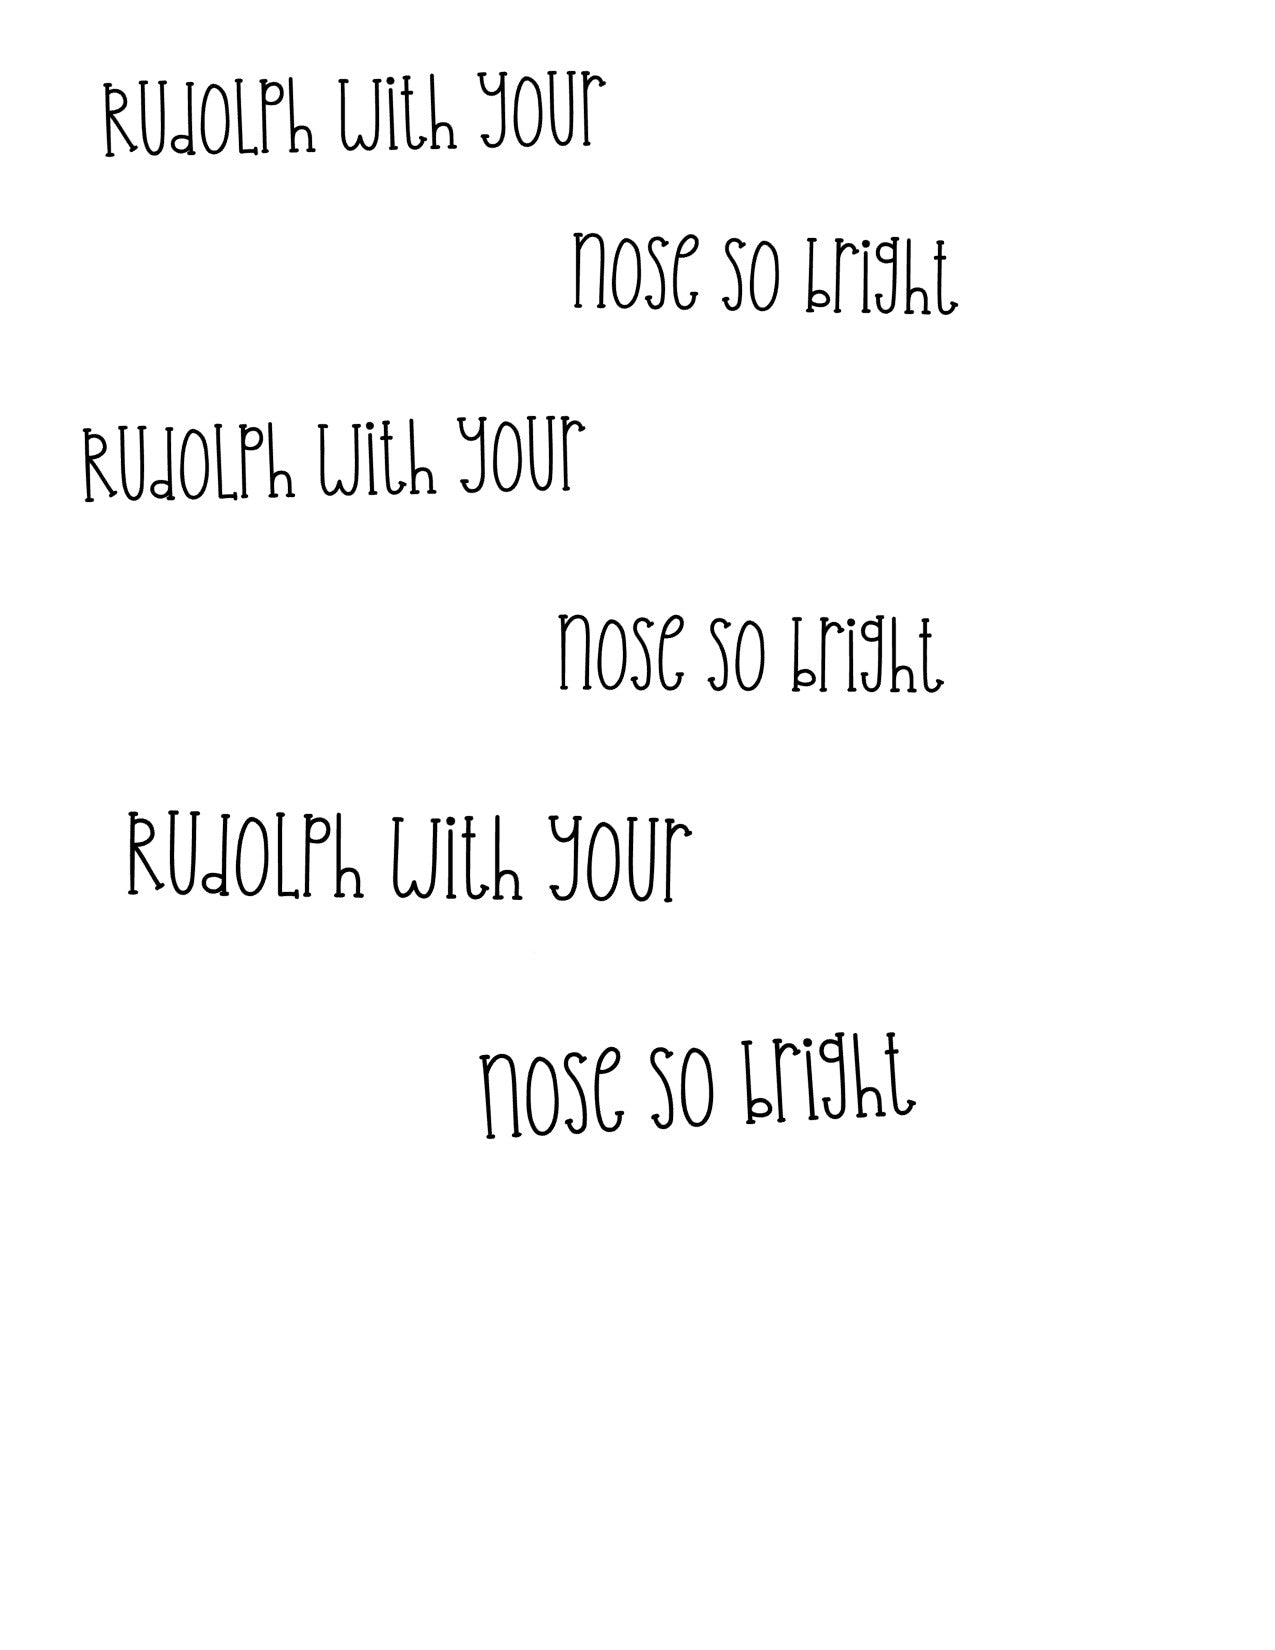 RUdOLPh with your
nose so bright
RUdOLPh with your
nose so bright
RUdOLPh with your
nose so bright